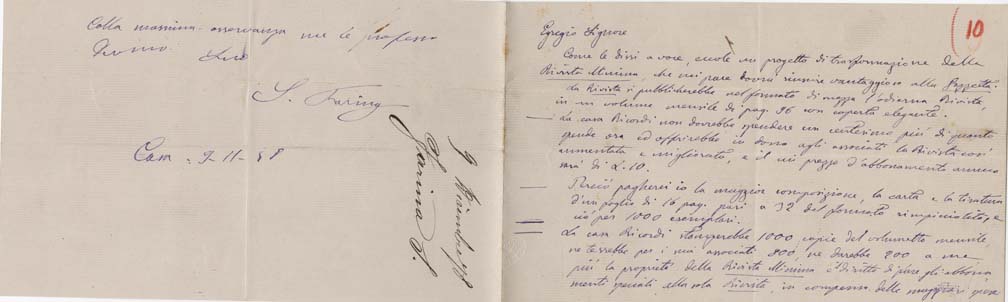 10
Egregio Signore
Come le dissi a voce, eccole un progetto di trasformazione della
Rivista Minima, che mi pare dovrà riuscire vantaggioso alla Gazzetta.
La Rivista si pubblicherebbe nel formato di mezza l'odierna Rivista,
in un volume mensile di pag. 96 con coperta elegante.
La casa Ricordi non dovrebbe spendere un centesimo più di quanto
spende ora ed offrirebbe in dono agli associati la Rivista così
aumentata e migliorata, e il cui prezzo d'abbonamento annuo
sarà di L. 10.
Perciò pagherei io la maggior composizione, la carta e la tiratura
d'un foglio di 16 pag. pari a 32 del formato rimpicciolito, e
ciò per 1000 esemplari.
La casa Ricordi stamperebbe 1000 copie del volumetto mensile,
ne terrebbe per i suoi associati 800, ne darebbe 200 a me
più la proprietà della Rivista Minima e il diritto di fare gli abbona
menti speciali alla sola Rivista, in compenso delle maggiori spese
Colla massima osservanza me le professo
Suo
S. Farina
Casa. 9-11-78
9 Novembre 78
Farina S.